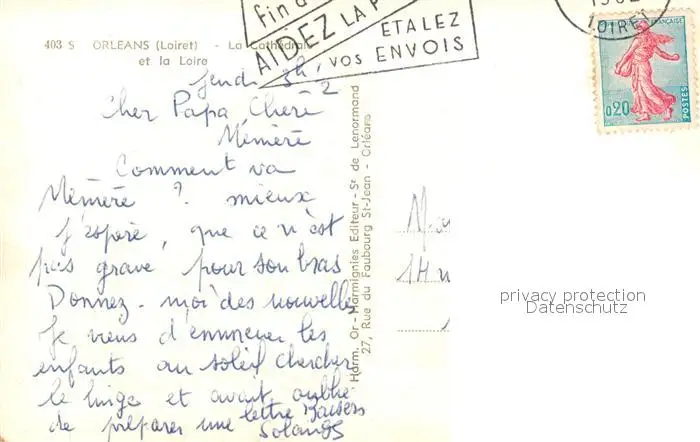 fin d
AIDEZ LA P
ETALEZ
VOS ENVOIS
LOIRET
FRANÇAISE
0,20
POSTES
403 S ORLEANS (Loiret) - La Cathédrale
et la Loire
Jeudi 3h
Cher Papa, Chère
Mémère
Comment va
Mémère ? mieux
j'espère, que ce n'est
pas grave pour son bras
Donnez-moi des nouvelles
Je viens d'emmener les
enfants au soleil chercher
le linge et avait oublié
de préparer une lettre Baisers
Solange
Harm. Or - Harmignies Editeur - Sr de Lenormand
27, Rue du Faubourg St-Jean - Orléans
privacy protection
Datenschutz